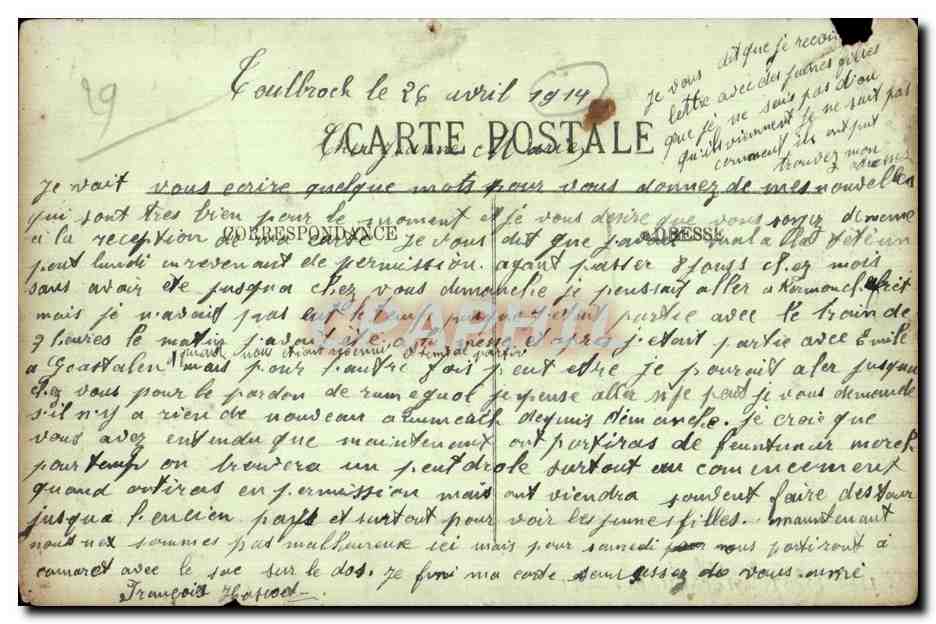 29
Toulbroch le 26 avril 1914
CARTE POSTALE
je vous dit que je recoit
lettre avec des jeunes filles
que je ne sais pas d'ou
qu'ils viennent je ne sait pas
comment ils ont put
trouvez mon
Cher Marie
Je vait vous ecrire quelque mots pour vous donnez de mes nouvelles
qui sont tres bien pour le moment et je vous desire que vous soyez de meme
CORRESPONDANCE
ADRESSE
a la reception de ma carte Je vous dit que
lundi en revenant de permission. ayant passer 8 jours chez mois
sans avoir ete jusqua chez vous dimanche je pensait aller a
mais je n'avait pas partie avec le train de
CPAPHIL
7 heures le matin javait ete apres jetait partie avec Emile
quand nous partir
a Goastalen mais pour l'autre fois peut etre je pourait aler jusqua
chez vous pour le pardon de rumequol je pense aller si je peut je vous demande
s'il n'y a rien de nouveau a depuis dimanche. je croie que
vous avez entendu que maintenant ont partiras de
pour on trouvera un peut drole surtout au commencement
quand ont iras en permission mais ont viendra souvent faire des tour
jusqua l'encien pays et surtout pour voir les jeunes filles. maintenant
nous nes sommes pas malheureux ici mais pour samedi nous partiront a
camaret avec le sac sur le dos. je fini ma carte de vous
François